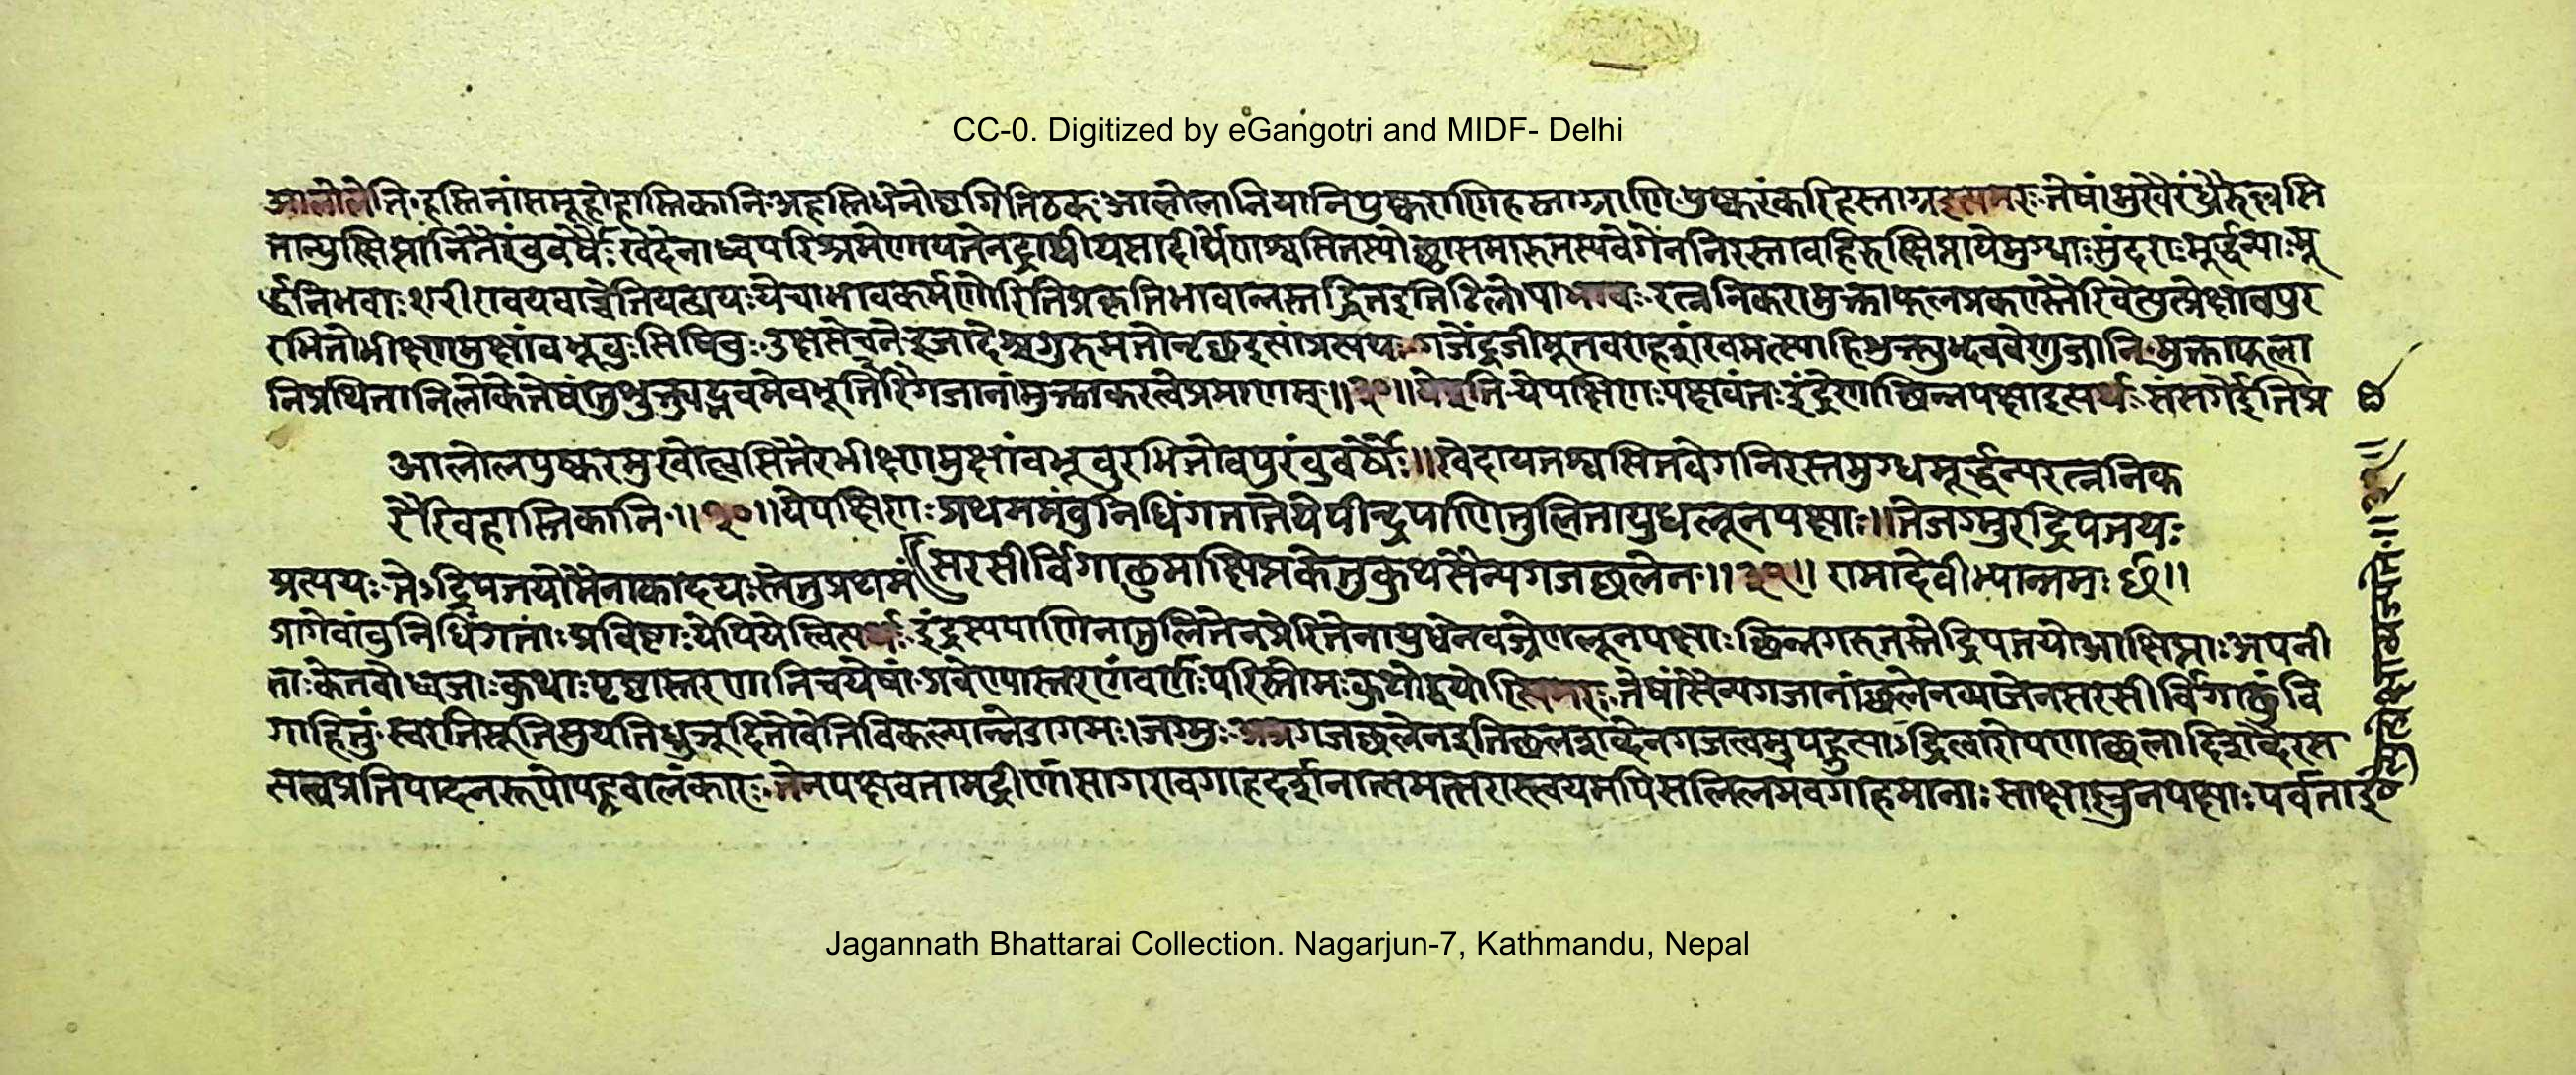 CC-0. Digitized by eGangotri and MIDF- Delhi
आलोलेति हस्तिनां समूहो हास्तिकानि अहस्तिधेनोष्ठगितिठक् आलोलानि यानि पुष्कराणि हस्ताग्राणि पुष्करं करिहस्ताग्र इत्यमरः तेषां मुखै रंध्रैरुल्लसि
तान्युत्क्षिप्तानि तैरंबुवर्षैः खेदेनाध्वपरिश्रमेणायतेन द्राघीयसा दीर्घेण श्वसितस्योच्छ्वासमारुतस्य वेगेन निरस्ता वहिरुत्क्षिप्ता ये मुग्धाः सुंदराः मूर्द्धन्याः मू
र्द्धनि भवाः शरीरावयवाच्चेति यत्प्रत्ययः ये चाभावकर्मणोरिति प्रकृतिभावान्नस्तद्धित इति टिलोपाभावः रत्ननिकरा मुक्ताफलप्रकरास्तैरिवेत्युत्प्रेक्षा वपुर
रभितोभीक्ष्णमुक्षांवभूवुः सिषिचुः उक्षसेचने इजादेश्च गुरुमतोनृच्छ इत्यांप्रत्ययः गजेंद्रजीमूतवराहशंखमत्स्याहिशुक्त्युद्भववेणुजानि मुक्ताफला
नि प्रथितानि लोके तेषां तु शुक्त्युद्भवमेव भूरि इति गजानां मुक्ताकरत्वे प्रमाणम् ॥३०॥ ये इति ये पक्षिणः पक्षवंतः इंद्रेणाछिन्नपक्षा इत्यर्थः संसर्गे इति प्र
आलोलपुष्करमुखोल्लसितैरभीक्ष्णमुक्षांवभूवुरभितो वपुरंवुवर्षैः ॥ खेदायतश्वसितवेगनिरस्तमुग्धमूर्द्धन्यरत्ननिक
रैरिव हास्तिकानि ॥३०॥ ये पक्षिणः प्रथममंवुनिधिं गतास्ते येपीन्द्रपाणितुलितायुधलूनपक्षाः ॥ ते जग्मुरद्रिपतयः
सरसीर्विगाढुमाक्षिप्तकेतुकुथसैन्यगजछलेन ॥३१॥ रामादेवीभ्यान्नमः ॥
प्रत्ययः ते ऽद्रिपतयो मैनाकादयः स्ते तु प्रथमं
प्रागेवांवुनिधिं गताः प्रविष्टाः येपि ये त्वित्यर्थः इंद्रस्य पाणिना तुलितेन प्रेरितेनायुधेन वज्रेण लूनपक्षाः छिन्नगरुतस्तेद्रिपतयो आक्षिप्ताः अपनी
ताः केतवो ध्वजाः कुथाः पृष्ठास्तरणानि च येषां प्रवेण्यास्तरणं वर्णः परिस्तोमः कुथो द्वयोरित्यमरः तेषां सैन्यगजानां छलेन व्याजेन सरसीर्विगाढुं वि
गाहितुं स्वरतिसूतिसूयतिधूञूदितो वेति विकल्पान्नेडागमः । जग्मुः अत्र गजछलेन इति छलशब्देन गजत्वमुपह्नुत्याऽद्रित्वारोपणाच्छलादिशब्दैरस
सत्यत्वप्रतिपादनरूपोपह्नवालंकारः तेन पक्षवतामद्रीणां सागरावगाहदर्शनात्समत्सरास्त्वयमपि सलिलमवगाहमानाः साक्षाल्लूनपक्षाः पर्वता इ
Jagannath Bhattarai Collection. Nagarjun-7, Kathmandu, Nepal